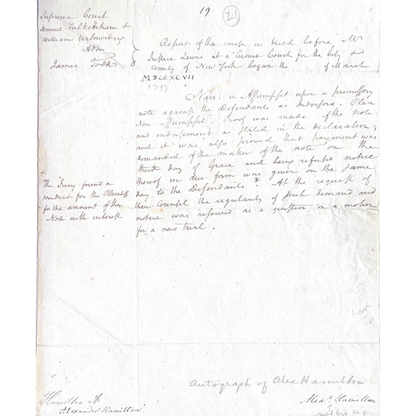 19
21
Supreme Court
Samuel
William
Adm
James Todd
Report of the cause in tried before Mr
Justice Lewis at a Circuit Court for the city &
county of New York begun the of March
MDCCXCVII
1797
Narr: in Assumpsit upon a promissory
note against the Defendants as Indorsors. Plea
Non Assumpsit. Proof was made of the Note
and indorsement as stated in the declaration,
and it was also proved that payment was
demanded of the maker of the note on the
third day of Grace and being refused notice
thereof in due form was given on the same
day to the Defendants * At the request of
their Counsel the regularity of such demand and
notice was reserved as a question on a motion
for a new trial.
The Jury found a
verdict for the
for the amount of the
Note with interest
Autograph of Alex Hamilton
Hamilton A
Alexander Hamilton
Alexr Hamilton